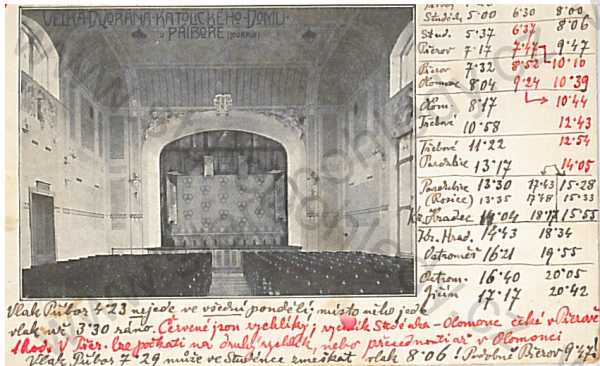 VELKÁ DVORANA KATOLICKÉHO DOMU
V PŘÍBOŘE (MORAVA)
Studén. 5·00 6·30 8·00
Stud. 5·37 6·37 8·06
Přerov 7·17 7·47 9·47
Přerov 7·32 8·52 10·10
Olomouc 8·04 9·24 10·39
Olom. 8·17 10·44
Třebové 10·58 12·43
Třebové 11·22 12·54
Pardubice 13·17 14·05
Pardubice 13·30 17·43 15·28
(Rosice) 13·35 17·48 15·33
Kr. Hradec 14·04 18·17 15·55
Kr. Hrad. 14·43 18·34
Ostroměř 16·21 19·55
Ostrom. 16·40 20·05
Jičín 17·17 20·42
Vlak Příbor 4·23 nejede ve všední pondělí, místo něho jede
vlak už 3·30 ráno. Červené jsou rychlíky, rychlík Studénka – Olomouc čeká v Přerově
1 hod. V Přer. lze počkati na druhý rychlík, nebo přesednouti až v Olomouci
Vlak Příbor 7·29 může ve Studénce zmeškat vlak 8·06! Podobně Přerov 9·47!